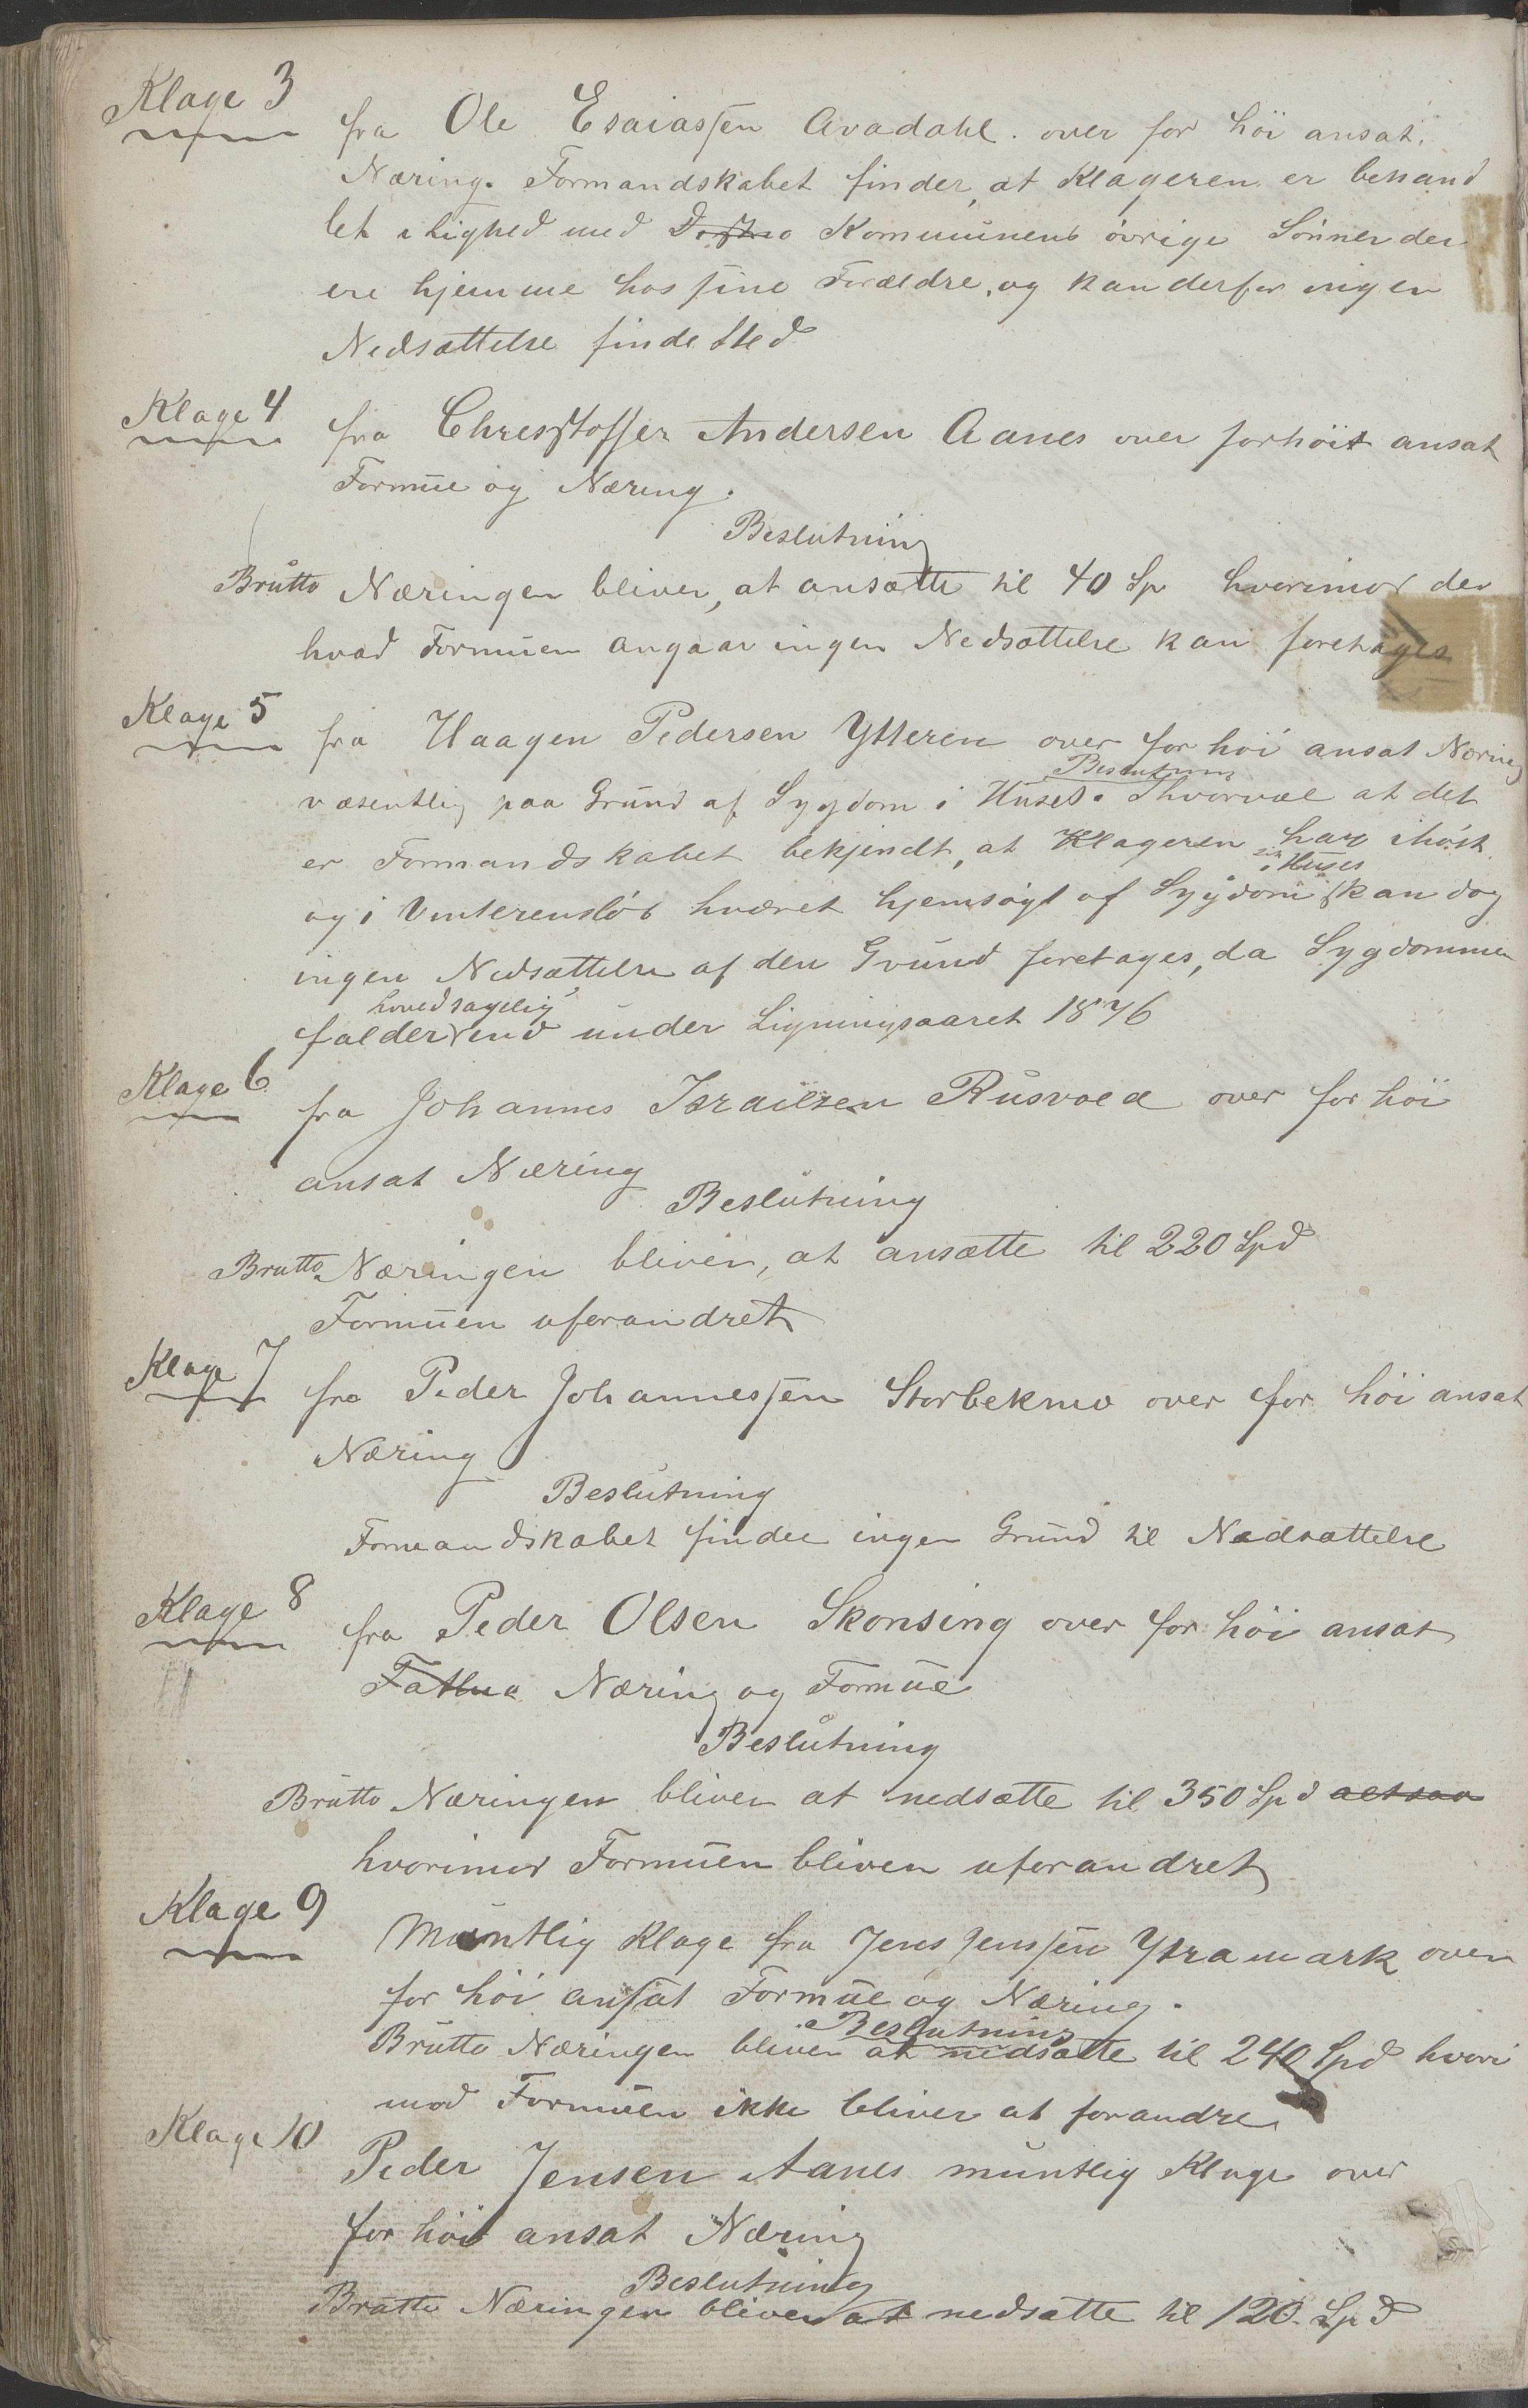 Klage 3
fra Ole Esaiassen Avadahl. over for höi ansat
Næring. Formandskabet finder, at Klageren er behand
let i lighed med Kommunens övrige Sönner der
ere hjemme hos sine Forældre, og kan derfor ingen
Nedsættelse finde Sted
Klage 4
fra Chrestoffer Andersen Aanes over forhöit ansat
Formue og Næring.
Beslutning
Brutto Næringen bliver, at ansætte til 40 Sp hvorimod der
hvad Formuen angaar ingen Nedsættelse kan foretages
Klage 5
fra Haagen Pedersen Ytteren over for höi ansat Næring
Beslutning
væsentlig paa Grund af Sygdom i Huset. Ihvorvæl at det
er Formandskabet bekjendt, at Klageren har i höst
i Huset
og i Vinterenslöb hværet hjemsögt af Sygdom kan dog
ingen Nedsættelse af den Grund foretages, da Sygdommen
hovedsagelig
falder ind under Ligningsaaret 1876
Klage 6
fra Johannes Israelsen Rusvold over for höi
ansat Næring
Beslutning
Brutto Næringen bliver, at ansætte til 220 Spd
Formuen uforandret
Klage 7
fra Peder Johannessen Storbekmo over for höi ansat
Næring
Beslutning
Formandskabet finder ingen Grund til Nedsættelse
Klage 8
fra Peder Olsen Skonsing over for höi ansat
Næring og Formue
Beslutning
Brutto Næringen bliver at nedsætte til 350 Spd altsaa
hvorimod Formuen bliver uforandret
Klage 9
Muntlig Klage fra Jens Jenssen Ytramark over
for höi ansat Formue og Næring.
Beslutning
Brutto Næringen bliver at nedsætte til 240 Spd hvori
mod Formuen ikke bliver at forandre
Klage 10
Peder Jensen Aanes muntlig Klage over
for höit ansat Næring
Beslutning
Brutto Næringen bliver at nedsætte til 120 Spd